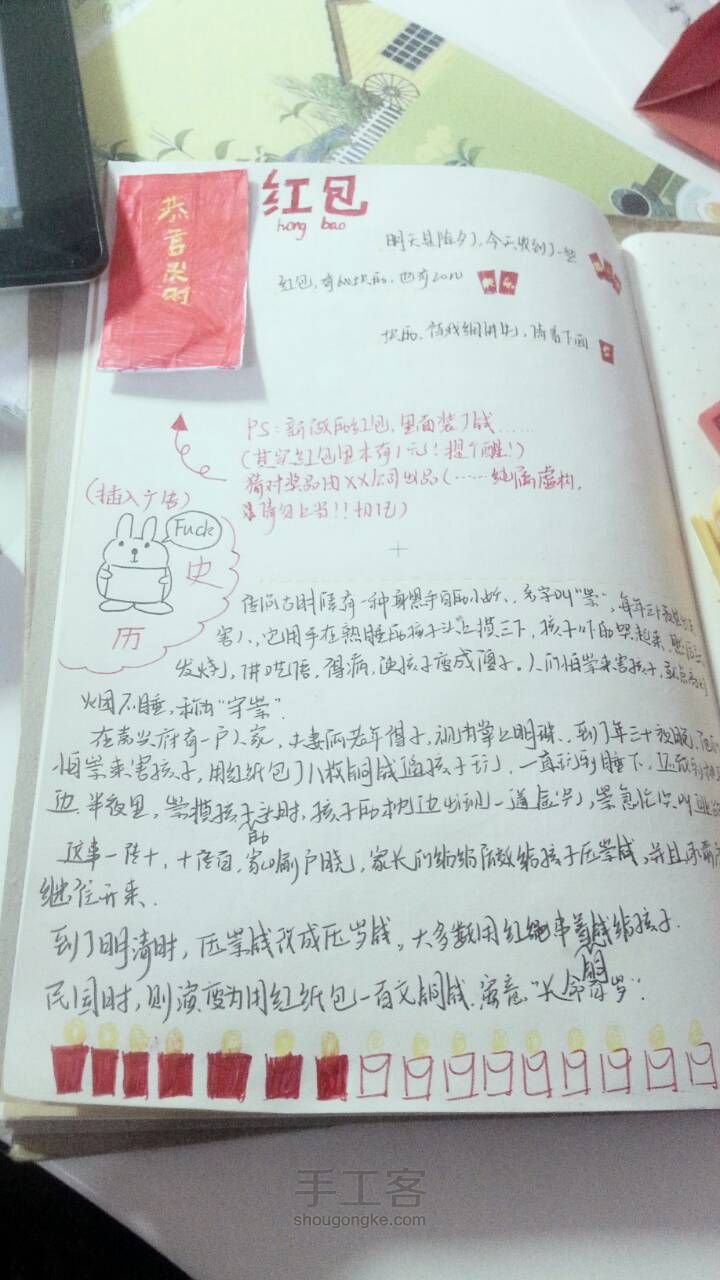 恭喜发财
红包
hong bao
明天是除夕了，今天收到了一些
红包，有的
块的，
PS：新做的红包，里面装了钱……
（其实红包里未有1元！提个醒！）
猜对奖品由XX公司出品（……纯属虚构，
请勿上当！！切记）
（插入广告）
Fuck
历史
传闻古时候有一种身黑手白的小妖，名字叫“祟”，每年三十夜
害人，它用手在熟睡的孩子头上摸三下，孩子吓的哭起来，然后
发烧，讲呓语，得病，使孩子变成傻子。人们怕祟来害孩子，就点
火团不睡，称为“守祟”．
在嘉兴府有一户人家，夫妻俩老年得子，视为掌上明珠、到了年三十夜晚，
怕祟来害孩子，用红纸包了八枚铜钱逗孩子玩，一直玩到睡下，还放到枕
边．半夜里，祟摸孩子头时，孩子的枕边出现一道金光，祟急忙尖叫
这事一传十，十传百，家喻户晓，家长们纷纷给孩子压祟钱，并且承前
继往开来．
到了明清时，压祟钱改成压岁钱，大多数用红绳串着钱给孩子．
民国时，则演变为用红纸包一百文铜钱．寓意“长命百岁”．
手工客
shougongke.com